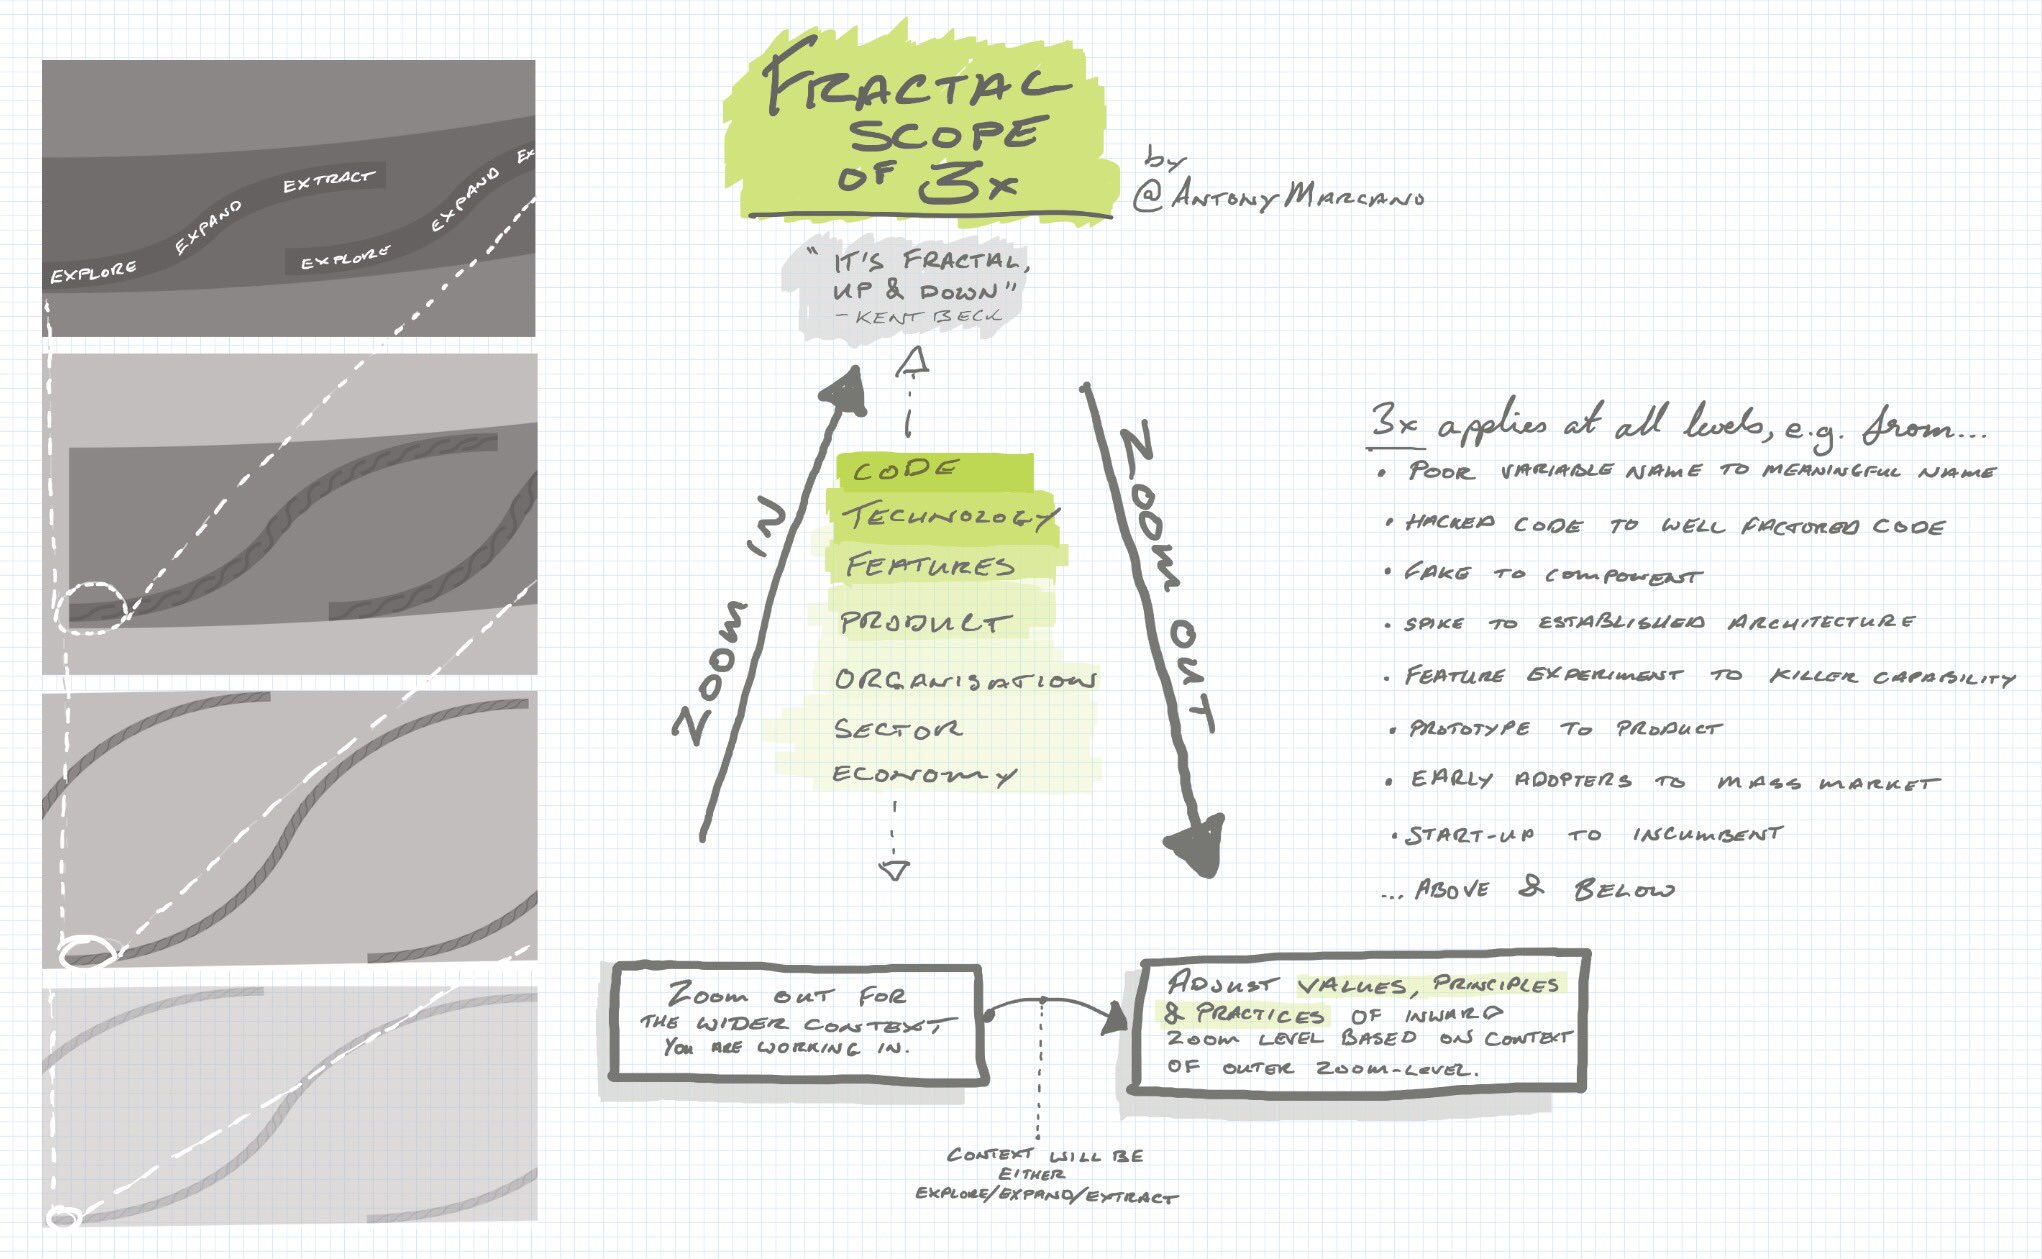 FRACTAL
SCOPE
OF 3x
by
@ANTONYMARCANO
"IT'S FRACTAL,
UP & DOWN"
- KENT BECK
EXPLORE
EXPAND
EXTRACT
EXPLORE
EXPAND
EX
ZOOM IN
CODE
TECHNOLOGY
FEATURES
PRODUCT
ORGANISATION
SECTOR
ECONOMY
ZOOM OUT
3x applies at all levels, e.g. from...
• POOR VARIABLE NAME TO MEANINGFUL NAME
• HACKED CODE TO WELL FACTORED CODE
• FAKE TO COMPONENT
• SPIKE TO ESTABLISHED ARCHITECTURE
• FEATURE EXPERIMENT TO KILLER CAPABILITY
• PROTOTYPE TO PRODUCT
• EARLY ADOPTERS TO MASS MARKET
• START-UP TO INCUMBENT
... ABOVE & BELOW
ZOOM OUT FOR
THE WIDER CONTEXT
YOU ARE WORKING IN.
ADJUST VALUES, PRINCIPLES
& PRACTICES OF INWARD
ZOOM LEVEL BASED ON CONTEXT
OF OUTER ZOOM-LEVEL.
CONTEXT WILL BE
EITHER
EXPLORE/EXPAND/EXTRACT